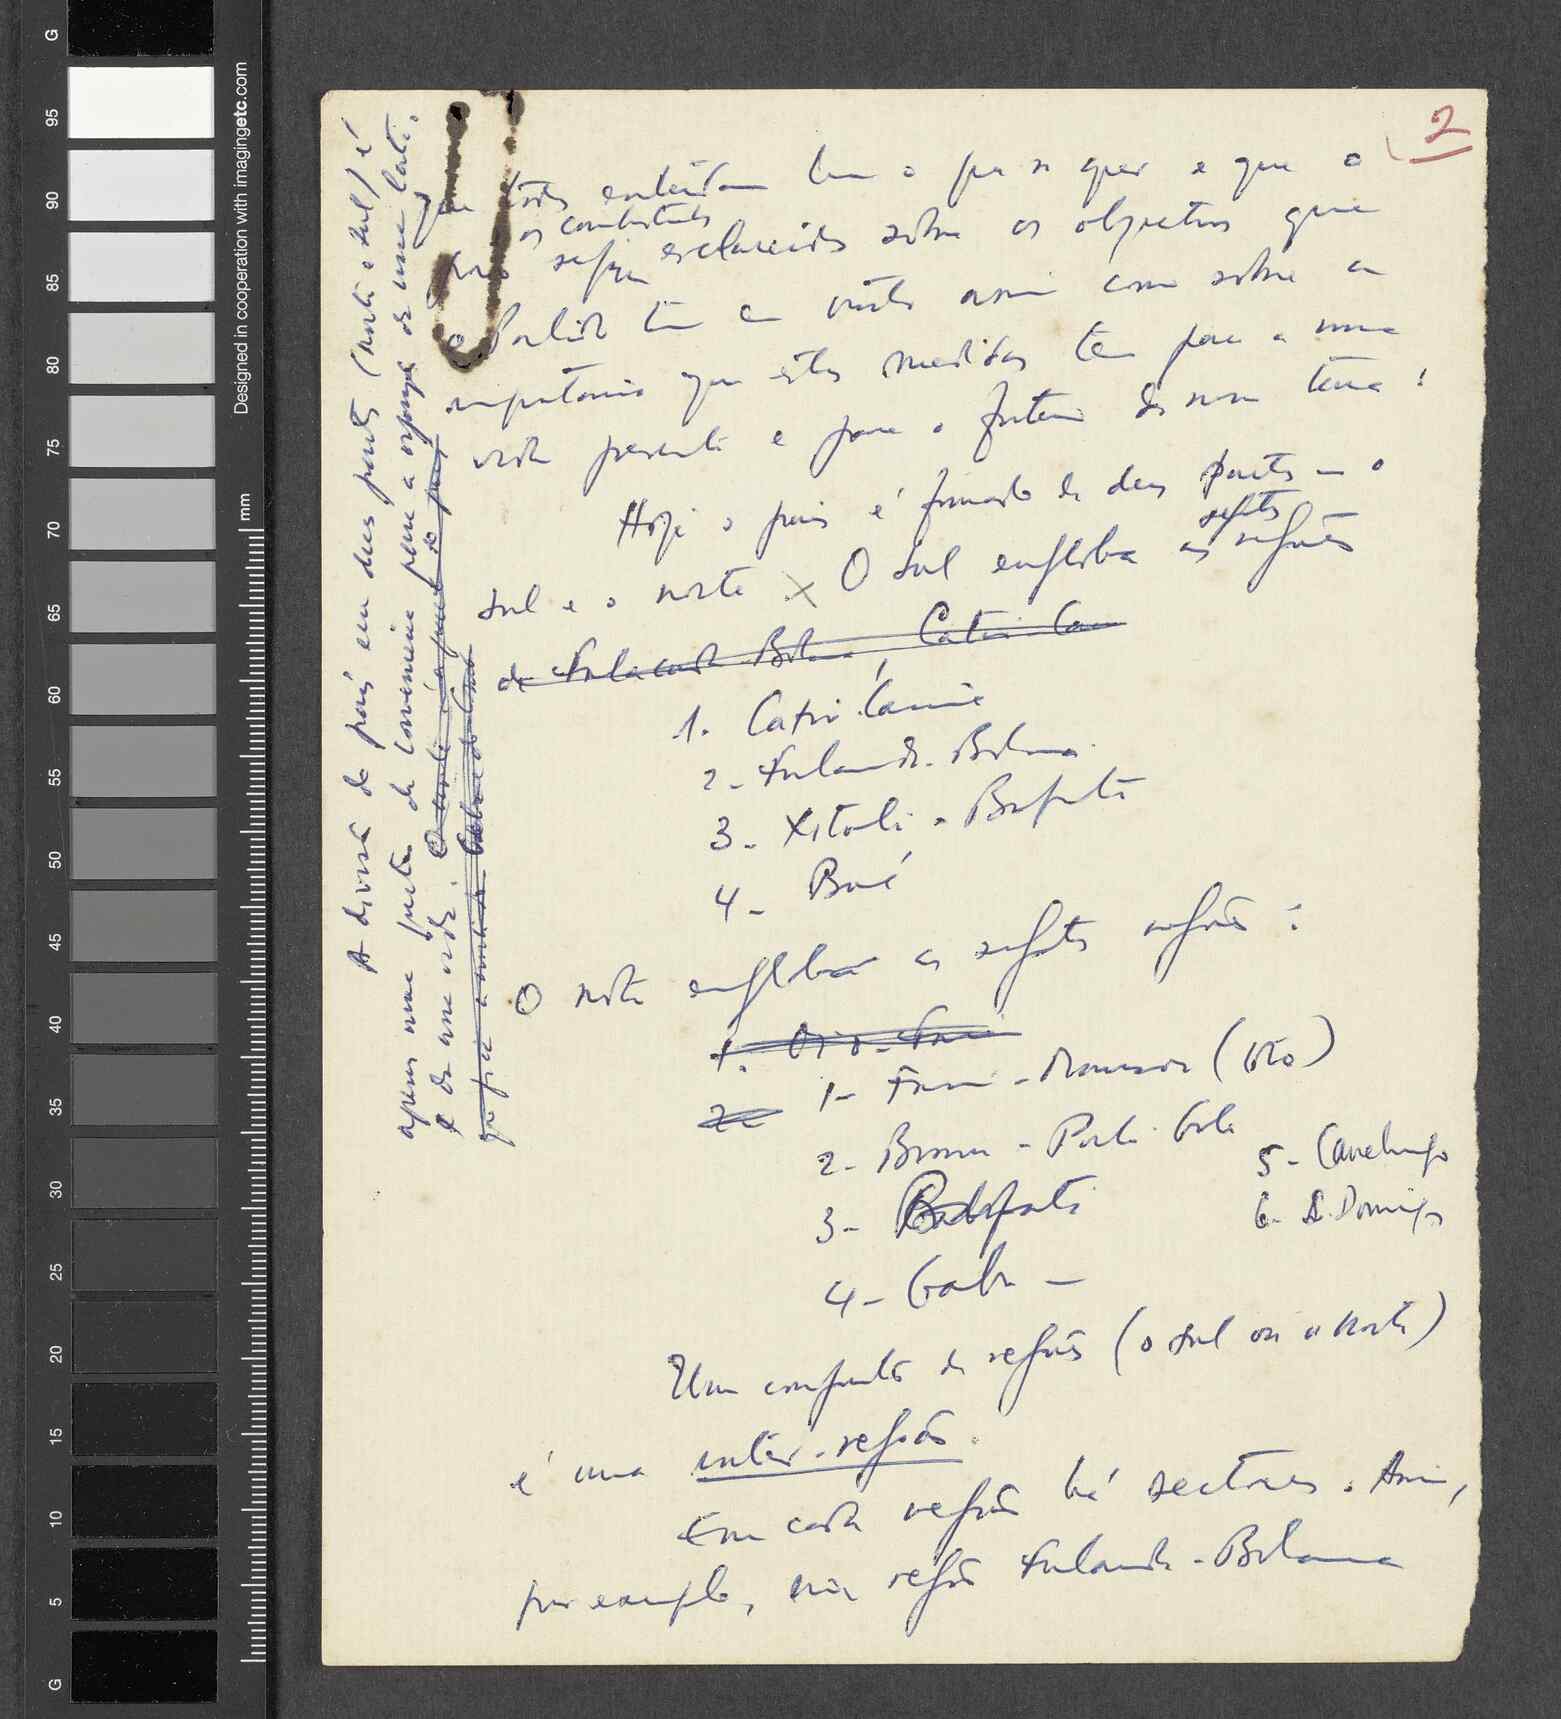 2
que todos entendam bem o que se quer e que o
os combatentes
povo sejam esclarecidos sobre os objectivos que
o Partido tem em vista assim como sobre a
importancia que estas medidas têm para a nossa
vida presente e para o futuro da nossa terra!
Hoje o país é formado de duas partes — o
seguintes
sul e o norte × O sul engloba as regiões
de Fulacunda Bolama, Catió-Can
1. Catió-Cacine
2- Fulacunda-Bolama
3- Xitoli-Bafatá
4- Boé
O norte engloba as seguintes regiões:
1. Oio-Farim
1- Farim-Mansoa (Oio)
2-
2- Bissau-Porto Gole
3- Bafatá
4- Gabu —
5- Canchungo
6- S. Domingos
Um conjunto de regiões (o sul ou o norte)
é uma inter-região.
Em cada região há sectores. Assim,
por exemplo, na região Fulacunda-Bolama
A divisão do país em duas partes (norte e sul) é
apenas uma questão de conveniência para a organização de uma luta,
e de uma vida.
G
95
90
85
80
75
70
65
60
55
50
45
40
35
30
25
20
15
10
5
G
Designed in cooperation with imagingetc.com
mm